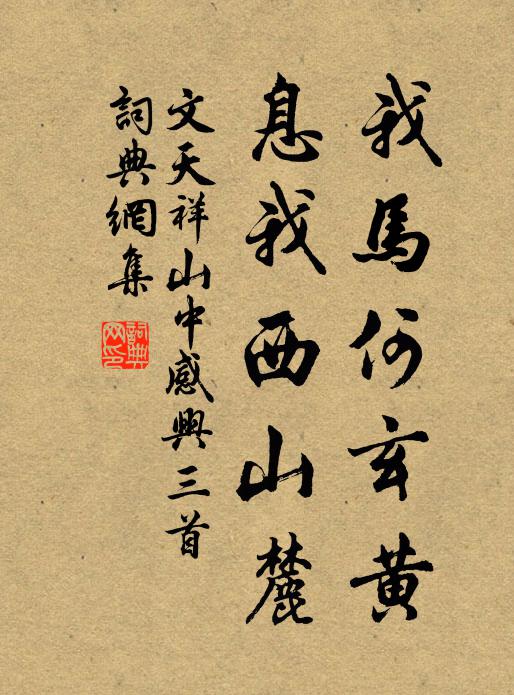 我馬何玄黃
息我西山麓
文天祥山中感興三首
詞典網集
詞典网印